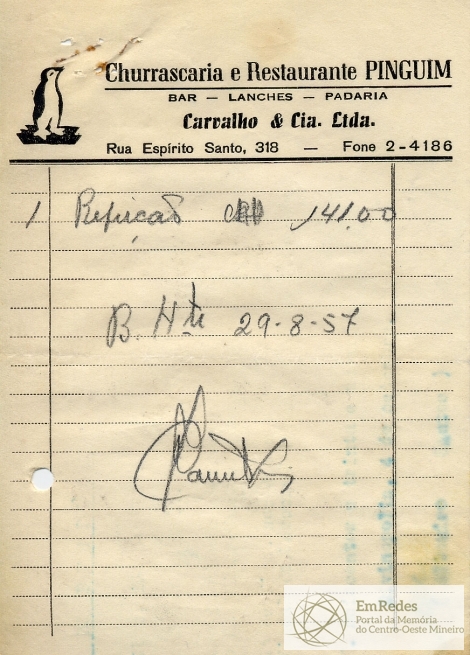 Churrascaria e Restaurante PINGUIM
BAR — LANCHES — PADARIA
Carvalho & Cia. Ltda.
Rua Espírito Santo, 318 — Fone 2-4186
1 Refeição 141,00
B. Hte 29-8-57
EmRedes
Portal da Memória
do Centro-Oeste Mineiro